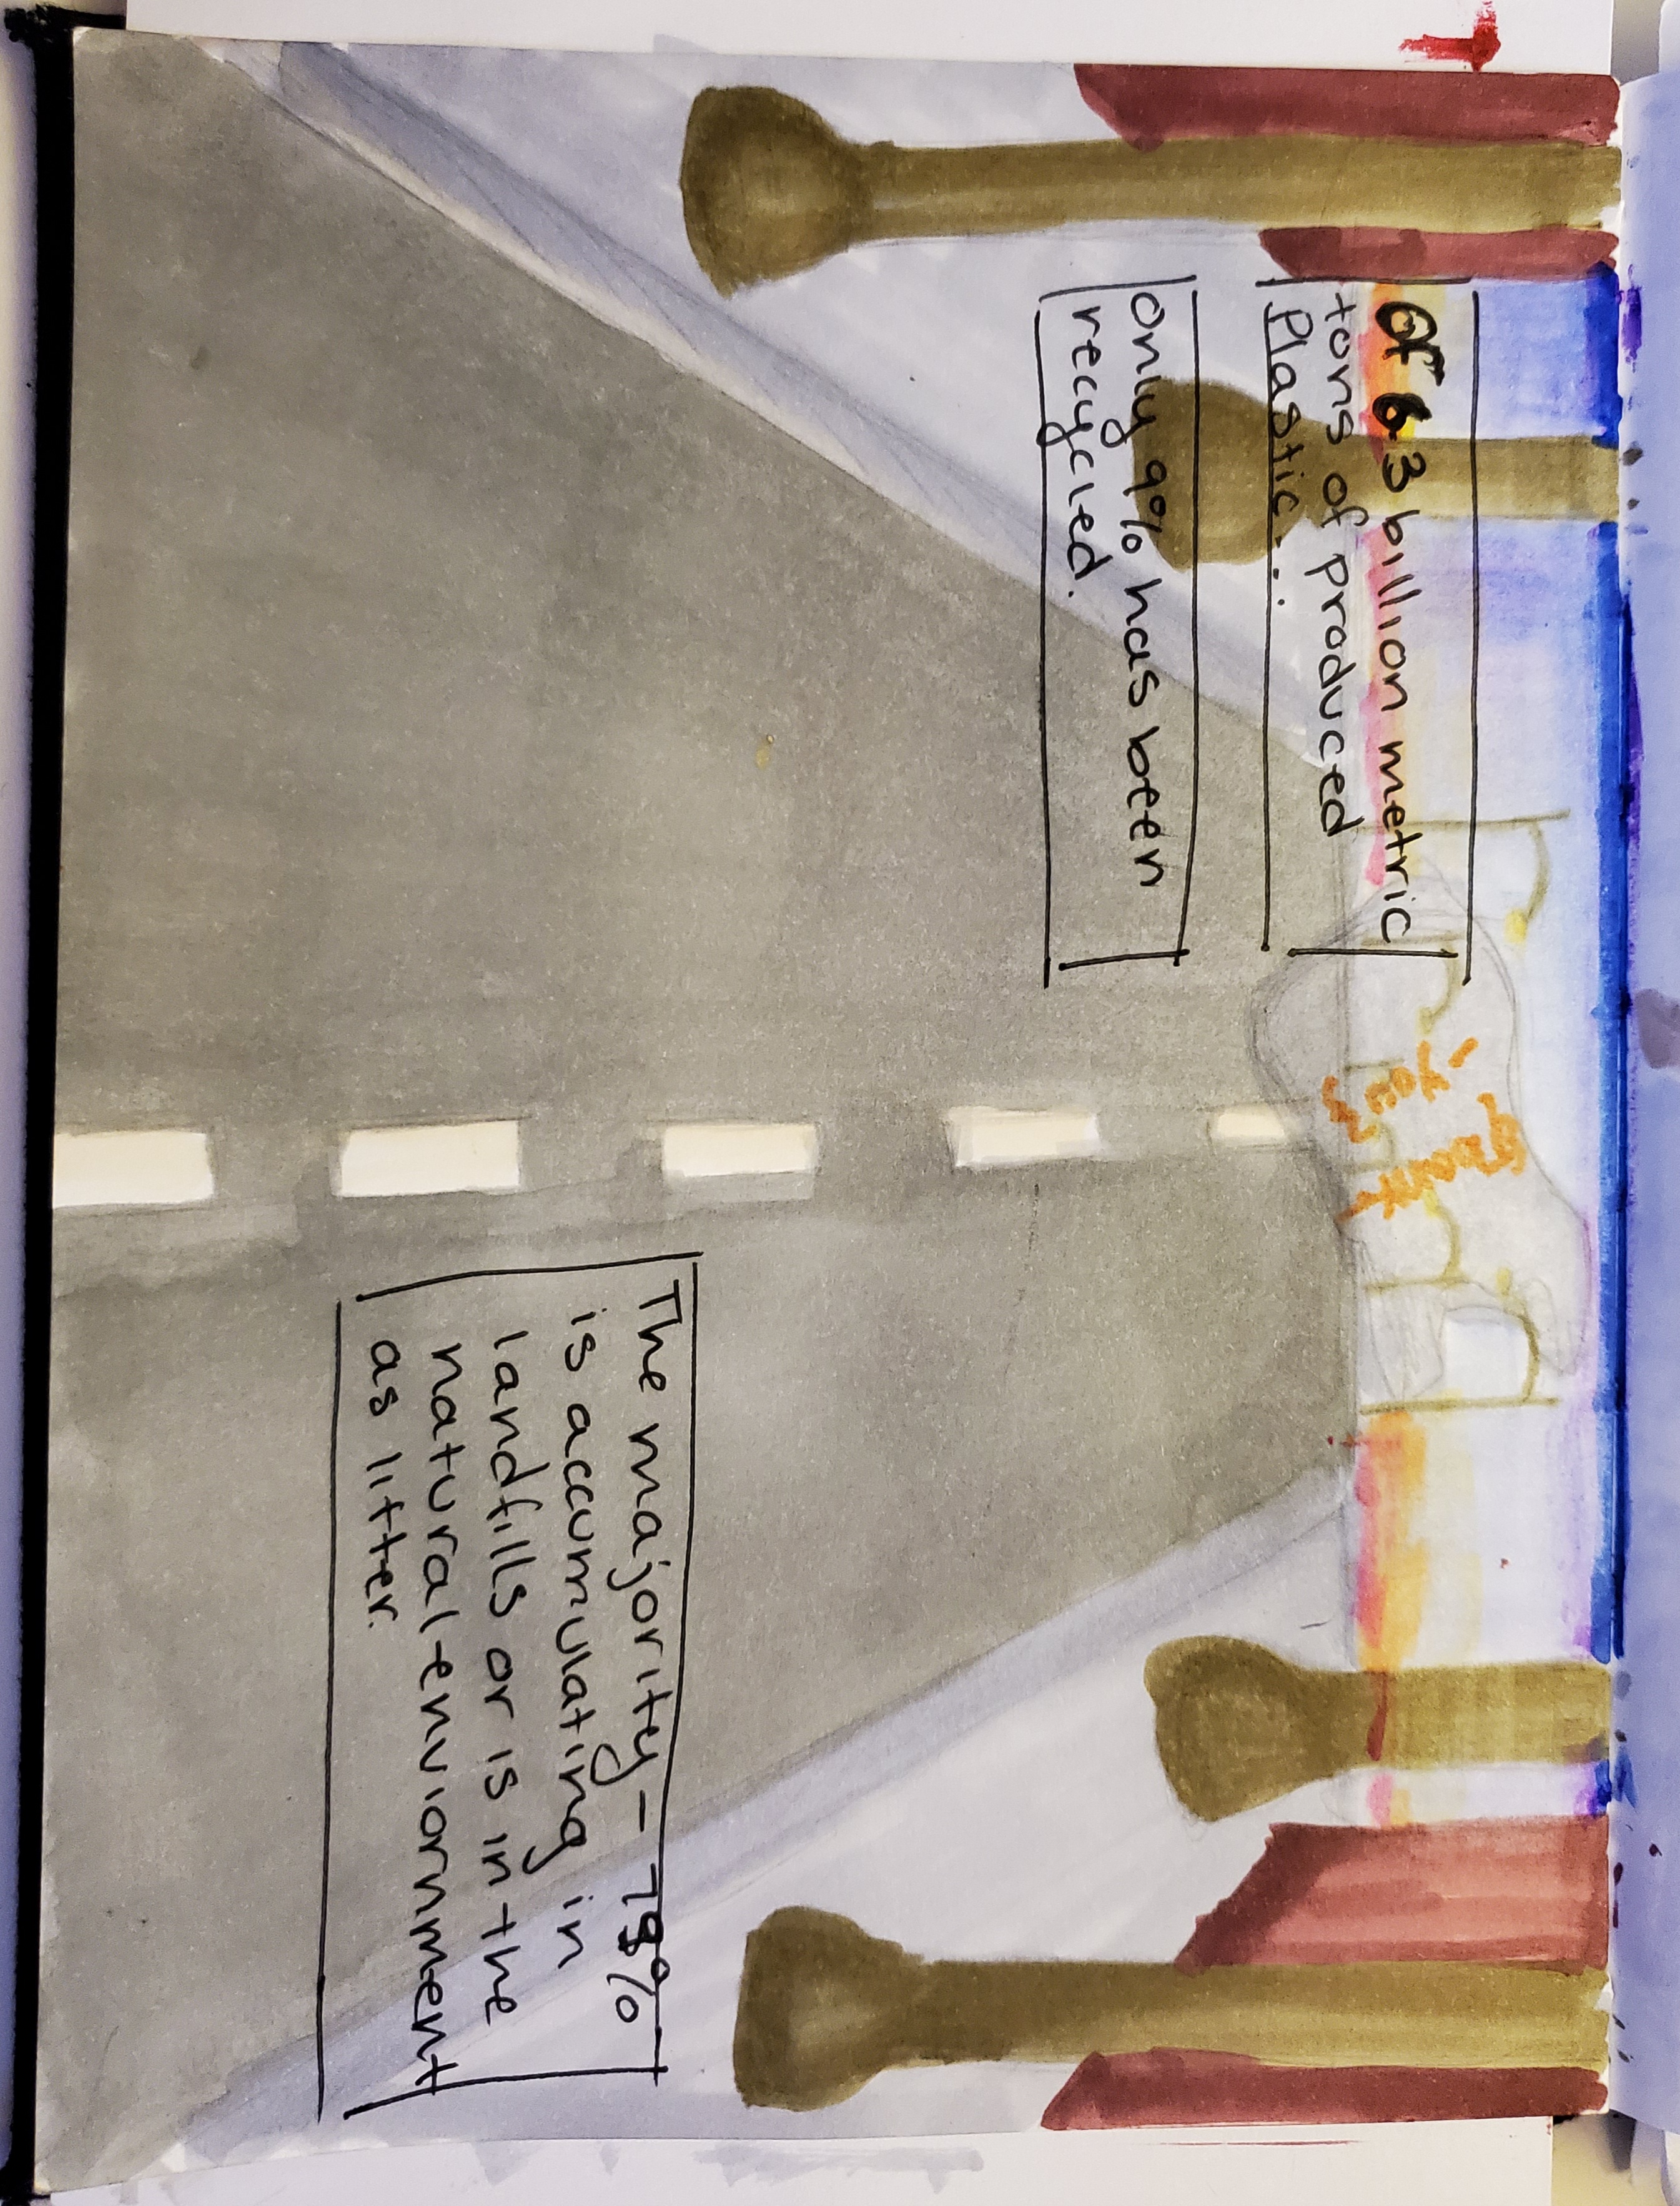 Of 6.3 billion metric
tons of produced
Plastic...
only 9% has been
recycled.
The majority - 79%
is accumulating in
landfills or is in the
natural enviornment
as litter.